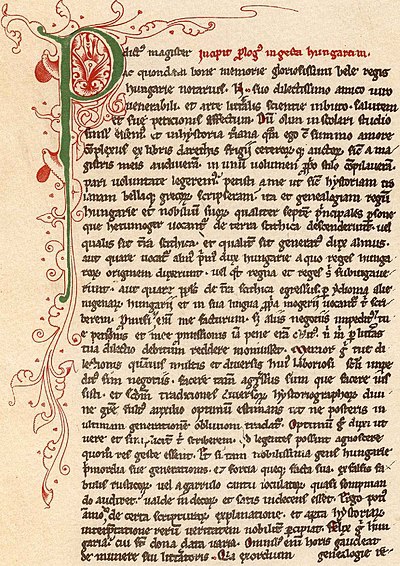 P dictꝰ magister Incipit ꝓlogꝰ in gesta hungarorum.
ac quondam bone memorie gloriosissimi bele regis
hungarie notarius. N. suo dilectissimo amico uiro
uenerabili. et arte litt̄alis scientie inbuto. salutem
et sue peticionis effectum. Dum olim in scolari studio
simul essemꝰ. et in hystoria troiana quam ego cū summo amore
complexus ex libris darethis frigii ceterorumqꝫ auctorum sicut a ma
gistris meis audiueram. in unum uolumen ꝓprio stilo compilaueram
pari uoluntate legeremꝰ. petisti a me ut sicut hystoriam tro
ianam bellaqꝫ grecorum scripseram. ita et genealogiam regum
hungarie et nobilium suorum. qualiter septem principales persone
que hetumoger uocantur de terra scithica descenderunt. uel
qualis sit terra scithica. et qualiter sit generatꝰ dux almus.
aut quare uocatur almꝰ primꝰ dux hungarie a quo reges hunga
rorum originem duxerunt. uel quot regna et reges sibi subiugaue
runt. aut quare populus de terra scithica egressus per ydioma alie
nigenarum hungarii et in sua lingua propria mogerii uocantur tibi scri
berem. Promisi enim me facturum. sed aliis negotiis impeditus et tu
e peticionis et mee promissionis iam pene eram oblitus. nisi mihi per litteras
tua dilectio debitum reddere monuisset. Memor igitur tue di
lectionis quamuis multis et diuersis huius laboriosi seculi impe
ditus sim negotiis. facere tamen aggressus sum que facere ius
sisti. et secundum traditiones diuersorum hystoriographorum diui
ne gratie fultus auxilio optimum estimans ut ne posteris in
ultimam generationem obliuioni tradatur. Optimum ergo duxi ut
uere et simpliciter tibi scriberem. quod legentes possint agnoscere
quomodo res geste essent. Et si tam nobilissima gens hungarie
primordia sue generationis. et fortia queqꝫ facta sua. ex falsis fa
bulis rusticorum. uel a garrulo cantu ioculatorum quasi sompnian
do audiret. ualde indecorum et satis indecens esset. Ergo potiꝰ
amodo de certa scripturarum explanatione. et aperta hystoriarum
interpretatione rerum ueritatem nobiliter percipiat. Felix igitur hun
garia. cui sunt dona data uaria. Omnibus enim horis gaudeat
de munere sui litteratoris. Quia exordium genealogie re